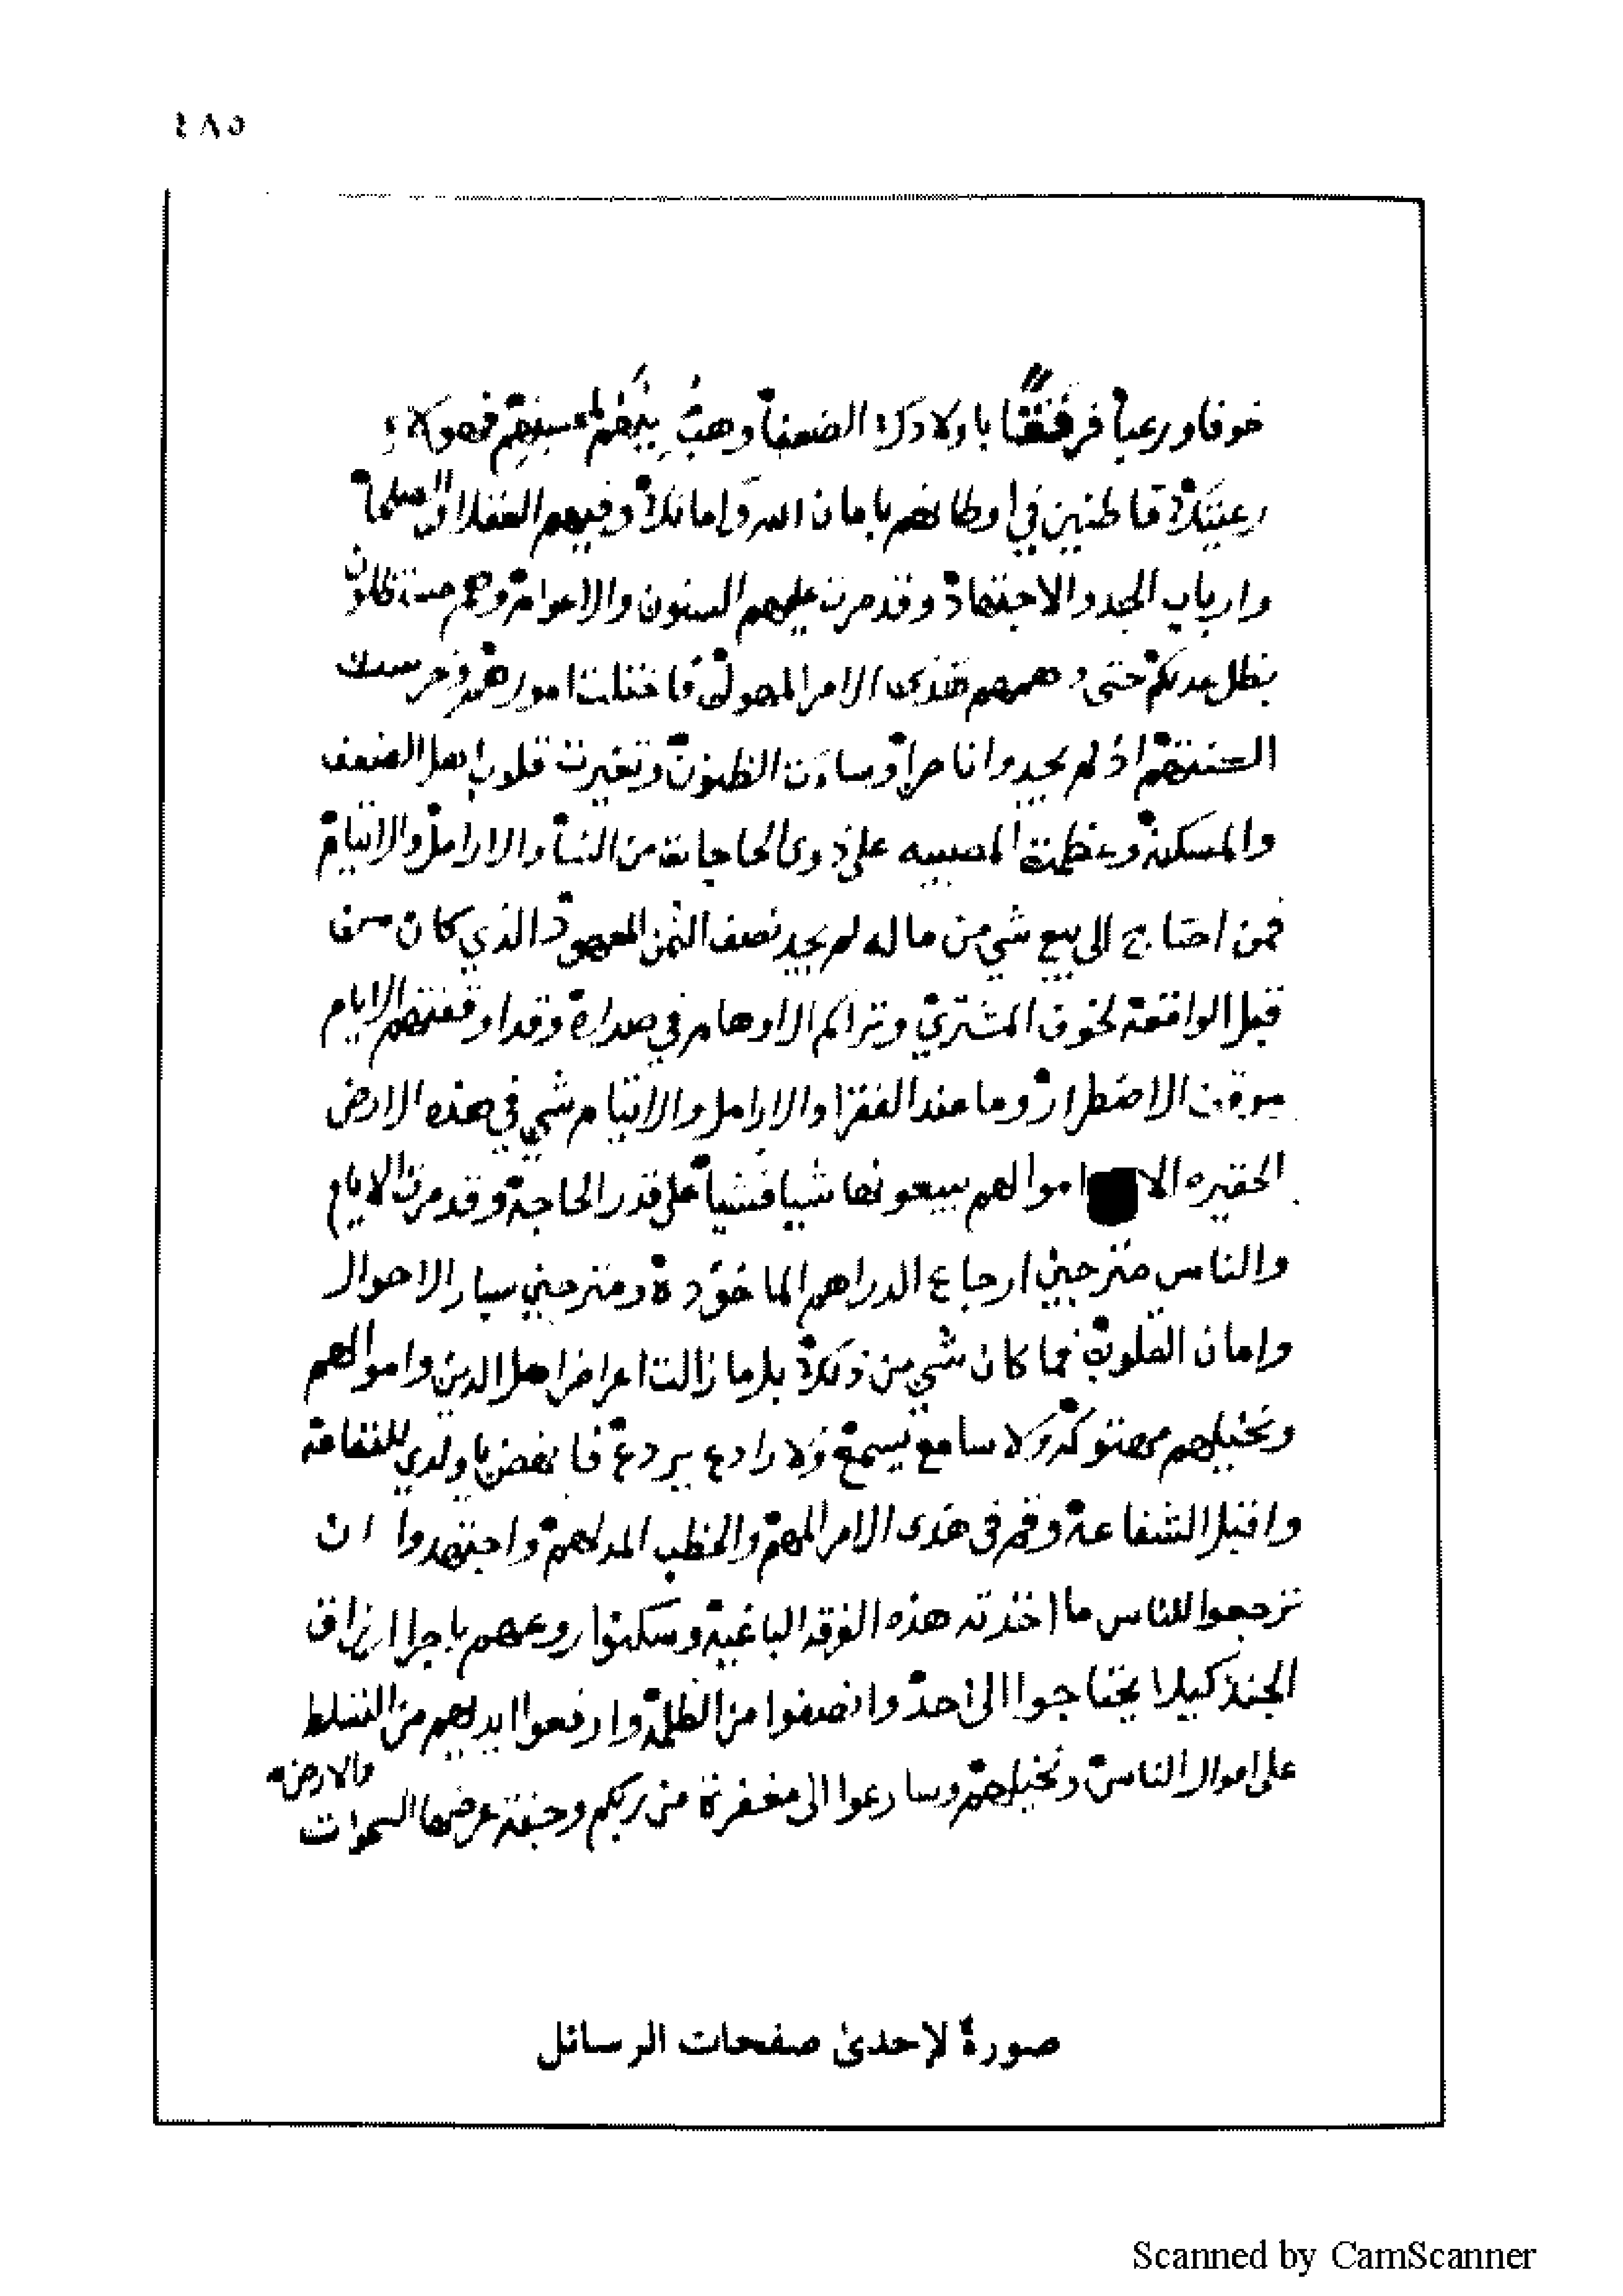 ٤٨٥
خوفا ورعبا فرفقًا باولادك الضعفا وهب لمسيئهم فهولاء
رعيتك قاطنين في اوطانهم بامان الله وامانك وفيهم الفضلا والصلحا
وارباب الجد والاجتهاد وقد مرت عليهم السنون والاعوام وهم مستظلون
بظل عدلكم حتى دهمهم هذى الامر المهول فاختلت امورهم وخرست
السنتهم اذ لم يجدوا ناصرا وساءت الظنون وتغيرت قلوب اهل الضعف
والمسكنة وعظمة المصيبه على ذوى الحاجات من النسا والارامل والايتام
فمن احتاج الى بيع شي من ماله لم يجد نصف الثمن المعهود الذي كان من
قبل الواقعة لخوف المشتري وتراكم الاوهام في صدره وقد اوقفتهم الايام
موقف الاضطرار وما عند الفقرا والارامل والايتام شي في هذه الارض
الحقيره الا اموالهم يبيعونها شيا فشيا على قدر الحاجة وقد مرت الايام
والناس مترجين ارجاع الدراهم الماخوذة ومترجين سيار الاحوال
وامان القلوب فما كان شي من ذلك بل ما زالت اعراض اهل الدين واموالهم
ونخيلهم مهتوكه ولا سامع يسمع ولا رادع يردع فانهض يا ولدي للشفاعة
واقبل الشفاعة وقم في هذى الامر المهم والخطب المدلهم واجتهدوا ان
ترجعوا للناس ما اخذته هذه الفرقه الباغية وسكنوا روعهم باجرا ارزاق
الجند كيلا يحتاجوا الى احد وانصفوا من الظلمة وارفعوا ايديهم من التسلط
على اموال الناس ونخيلهم وسارعوا الى مغفرة من ربكم وجنة عرضها السموات
والارض
صورة لإحدى صفحات الرسائل
Scanned by CamScanner